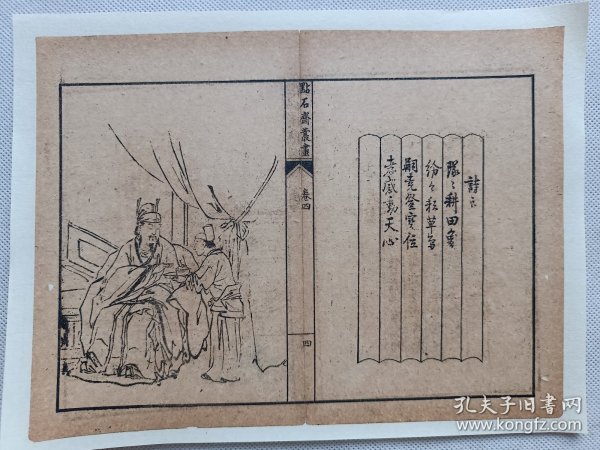 詩曰
隊〻耕田象
紛〻耘草禽
嗣堯登寶位
孝感動天心
點石齋叢畫
卷四
四
孔夫子旧书网
www.kongfz.com